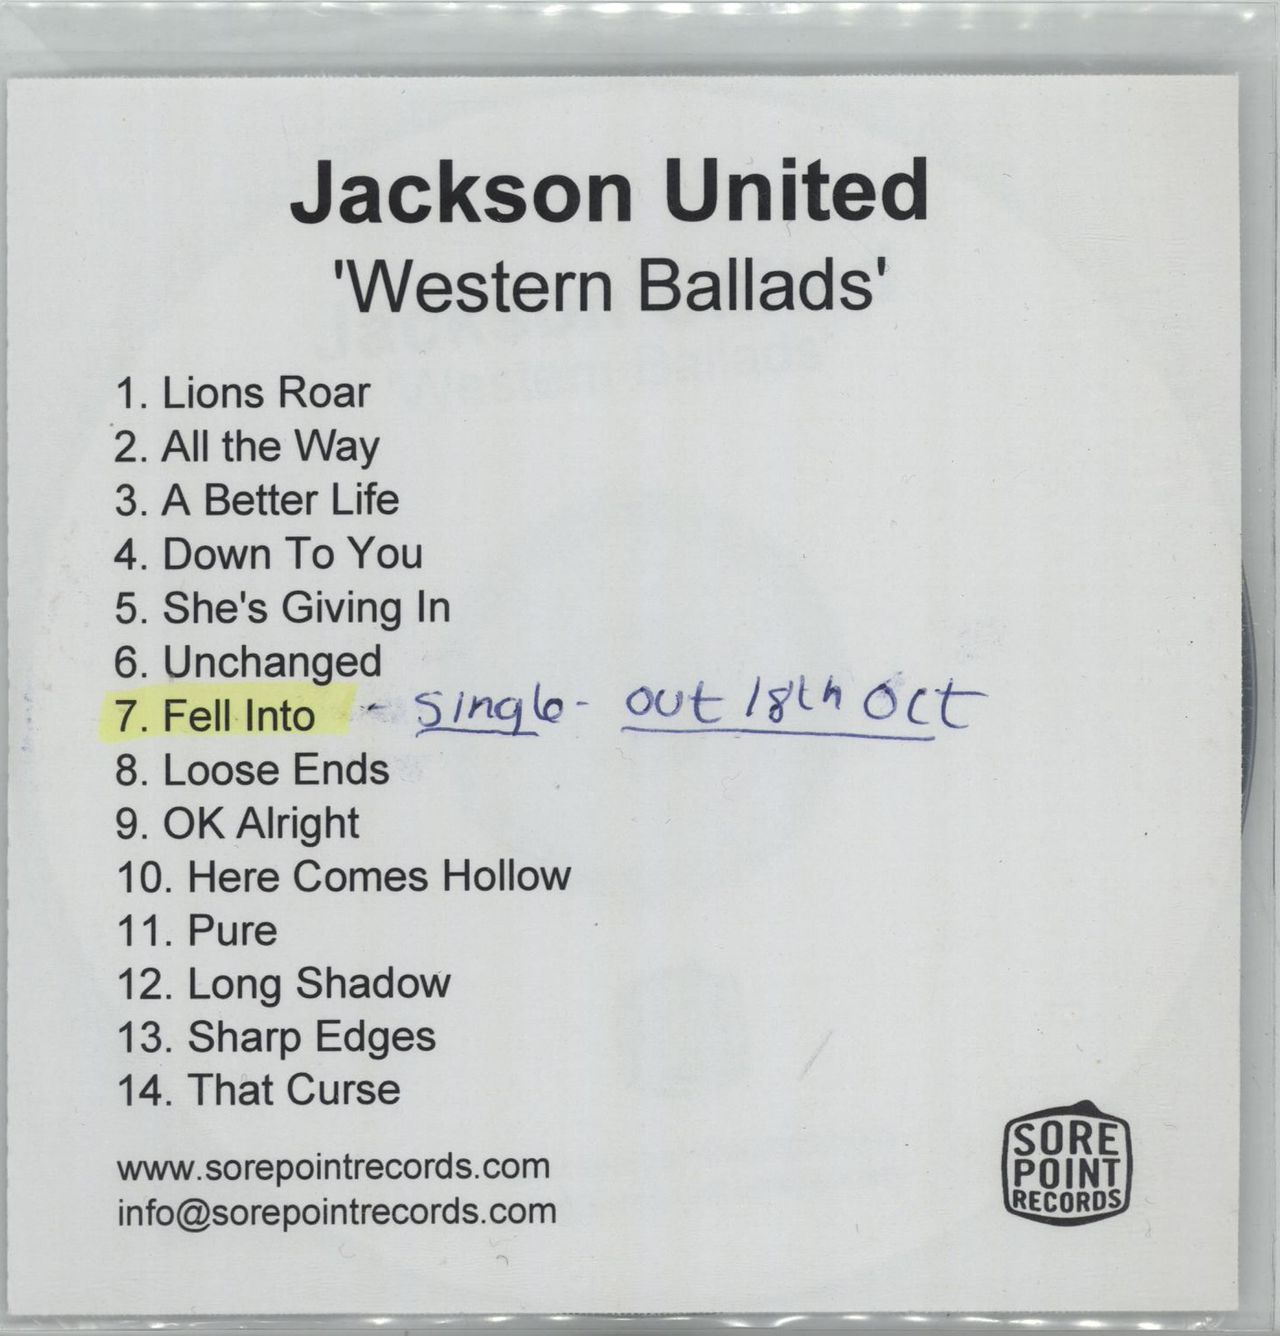 Jackson United
'Western Ballads'
1. Lions Roar
2. All the Way
3. A Better Life
4. Down To You
5. She's Giving In
6. Unchanged
7. Fell Into - single - out 18th Oct
8. Loose Ends
9. OK Alright
10. Here Comes Hollow
11. Pure
12. Long Shadow
13. Sharp Edges
14. That Curse
www.sorepointrecords.com
info@sorepointrecords.com
SORE
POINT
RECORDS